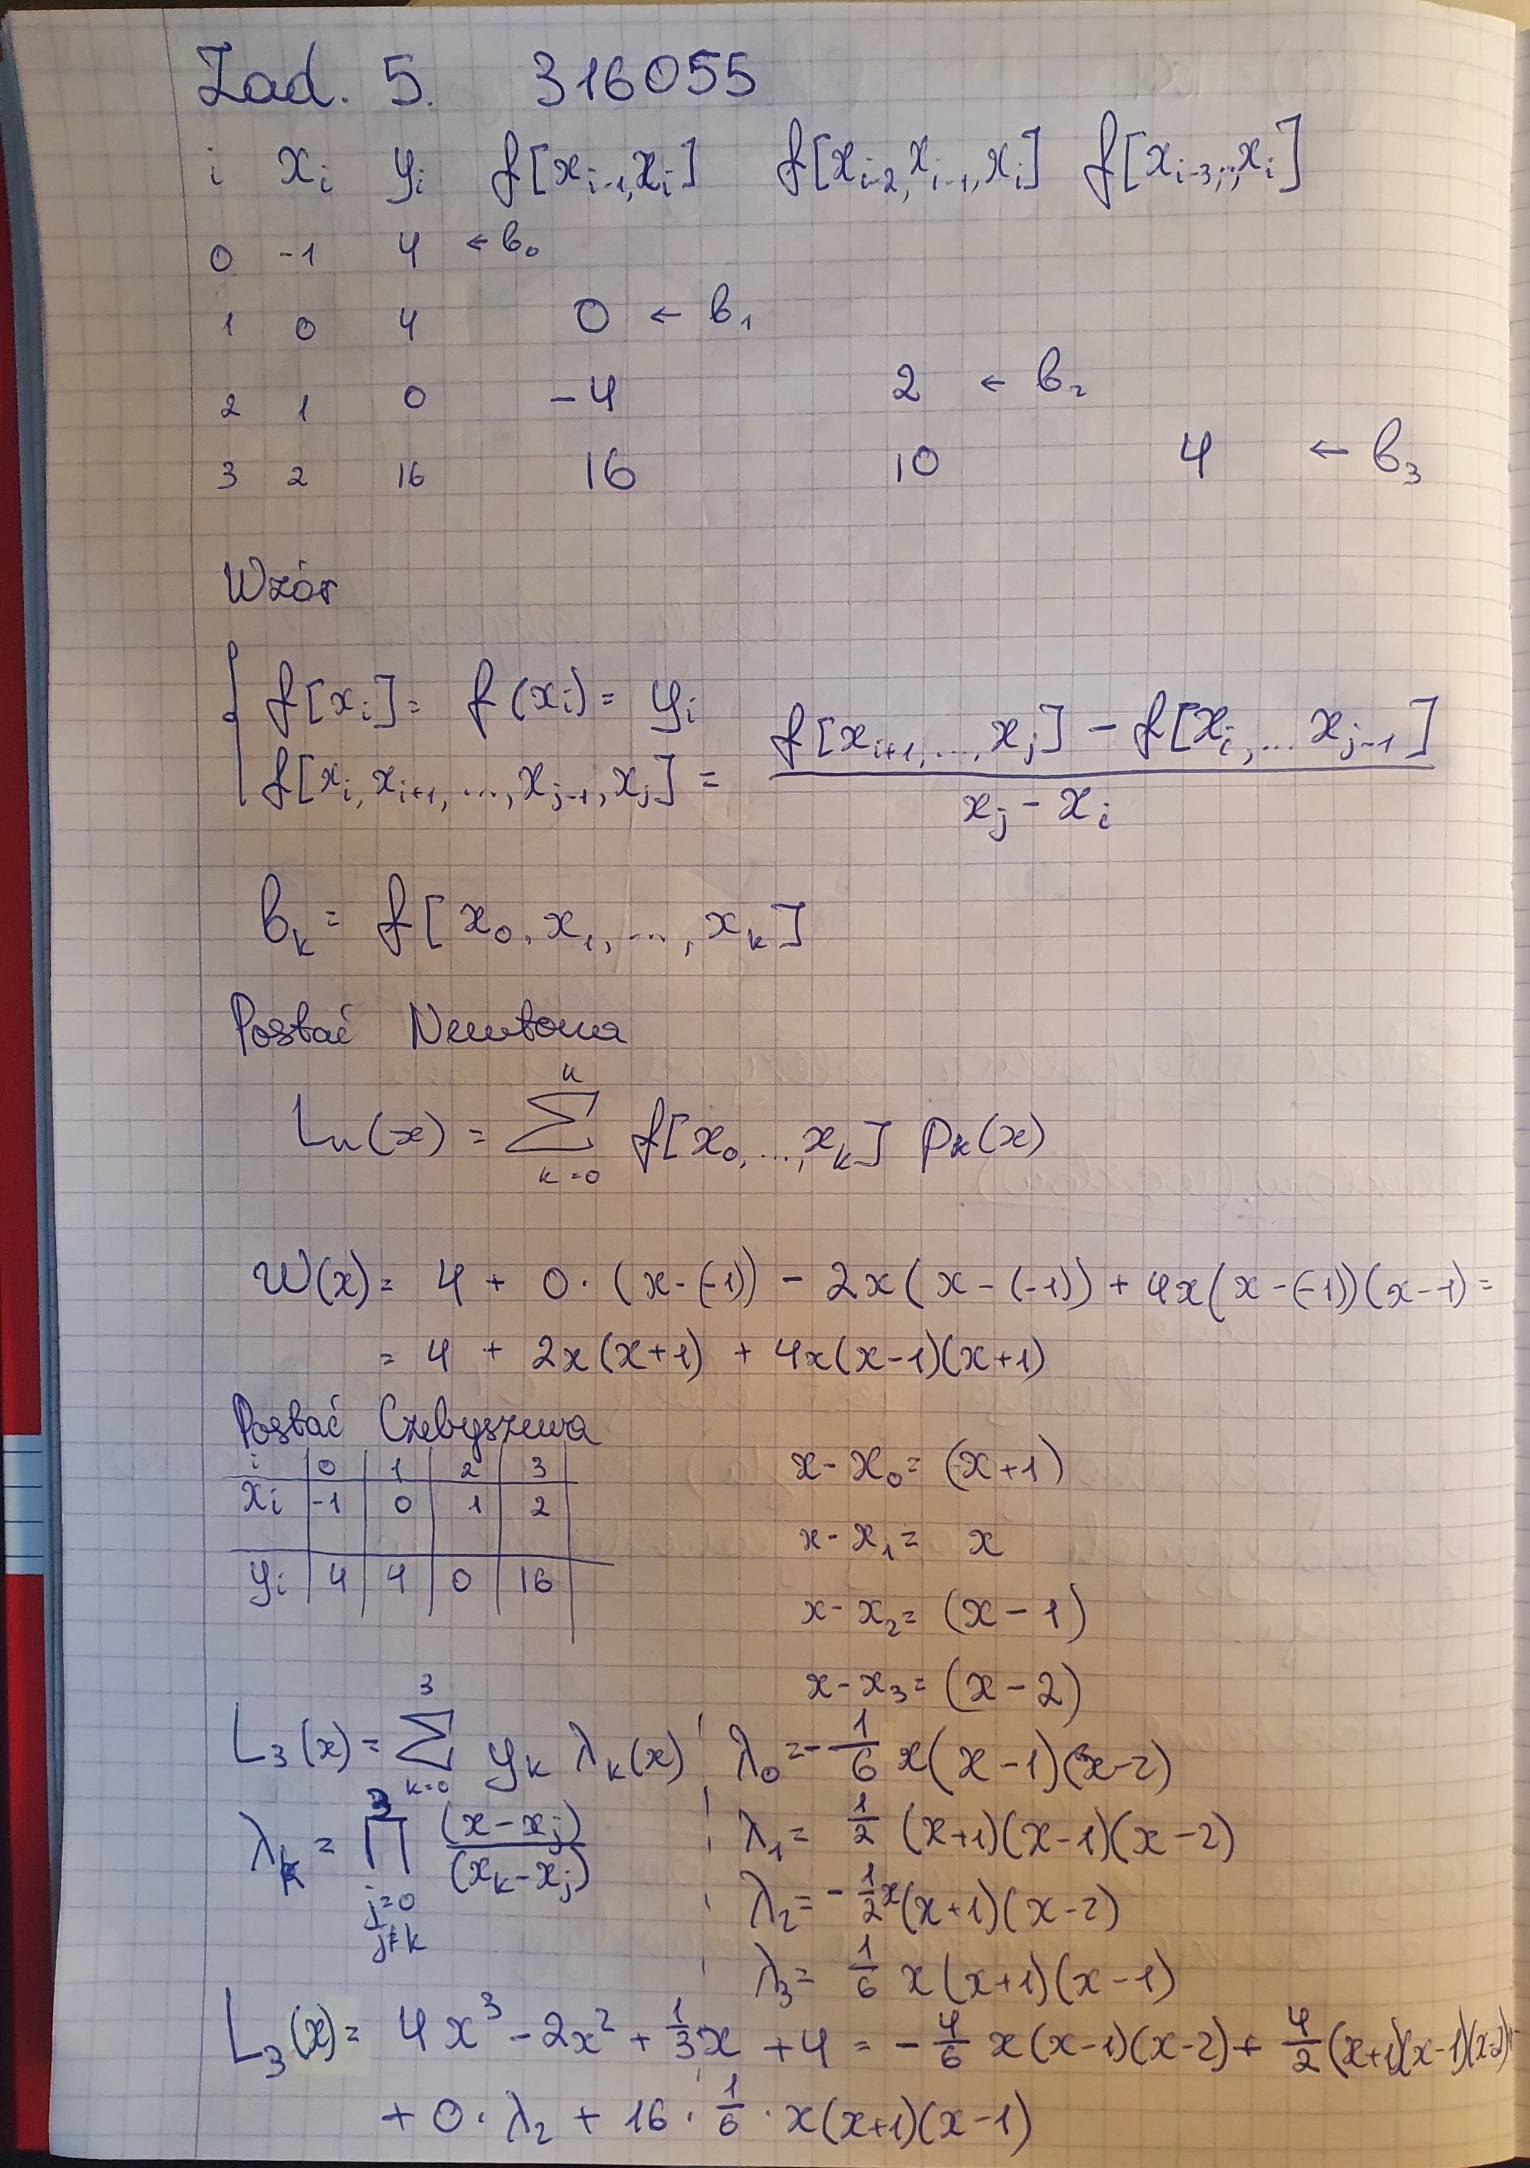 Zad. 5. 316055
i xᵢ yᵢ f[xᵢ₋₁,xᵢ] f[xᵢ₋₂,xᵢ₋₁,xᵢ] f[xᵢ₋₃,..,xᵢ]
0 -1 4 ← b₀
1 0 4 0 ← b₁
2 1 0 -4 2 ← b₂
3 2 16 16 10 4 ← b₃
Wzór
{ f[xᵢ] = f(xᵢ) = yᵢ
f[xᵢ, xᵢ₊₁, ..., xⱼ₋₁, xⱼ] = (f[xᵢ₊₁, ..., xⱼ] - f[xᵢ, ... xⱼ₋₁]) / (xⱼ - xᵢ)
bₖ = f[x₀, x₁, ..., xₖ]
Postać Newtona
Lₙ(x) = ∑_{k=0}^{n} f[x₀, ..., xₖ] pₖ(x)
W(x) = 4 + 0·(x-(-1)) - 2x(x-(-1)) + 4x(x-(-1))(x-1) =
= 4 + 2x(x+1) + 4x(x-1)(x+1)
Postać Czebyszewa
i | 0 | 1 | 2 | 3
xᵢ | -1 | 0 | 1 | 2
yᵢ | 4 | 4 | 0 | 16
x - x₀ = (x+1)
x - x₁ = x
x - x₂ = (x - 1)
x - x₃ = (x - 2)
L₃(x) = ∑_{k=0}^{3} yₖ λₖ(x)
λₖ = ∏_{j=0, j≠k}^{3} (x-xⱼ)/(xₖ-xⱼ)
λ₀ = -1/6 x(x-1)(x-2)
λ₁ = 1/2 (x+1)(x-1)(x-2)
λ₂ = -1/2 x(x+1)(x-2)
λ₃ = 1/6 x(x+1)(x-1)
L₃(x) = 4x³ - 2x² + 1/3 x + 4 = -4/6 x(x-1)(x-2) + 4/2 (x+1)(x-1)(x-2) +
+ 0·λ₂ + 16·1/6·x(x+1)(x-1)